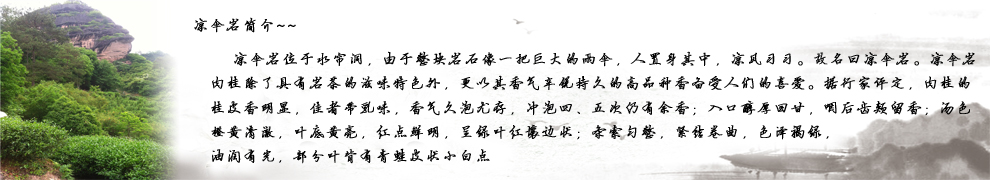 凉伞岩简介~~
凉伞岩位于水帘洞，由于整块岩石像一把巨大的雨伞，人置身其中，凉风习习。故名曰凉伞岩。凉伞岩
肉桂除了具有岩茶的滋味特色外，更以其香气辛锐持久的高品种香备受人们的喜爱。据行家评定，肉桂的
桂皮香明显，佳者带乳味，香气久泡尤存，冲泡四、五次仍有余香；入口醇厚回甘，咽后齿颊留香；汤色
橙黄清澈，叶底黄亮，红点鲜明，呈绿叶红镶边状；条索匀整，紧结卷曲，色泽褐绿，
油润有光，部分叶背有青蛙皮状小白点